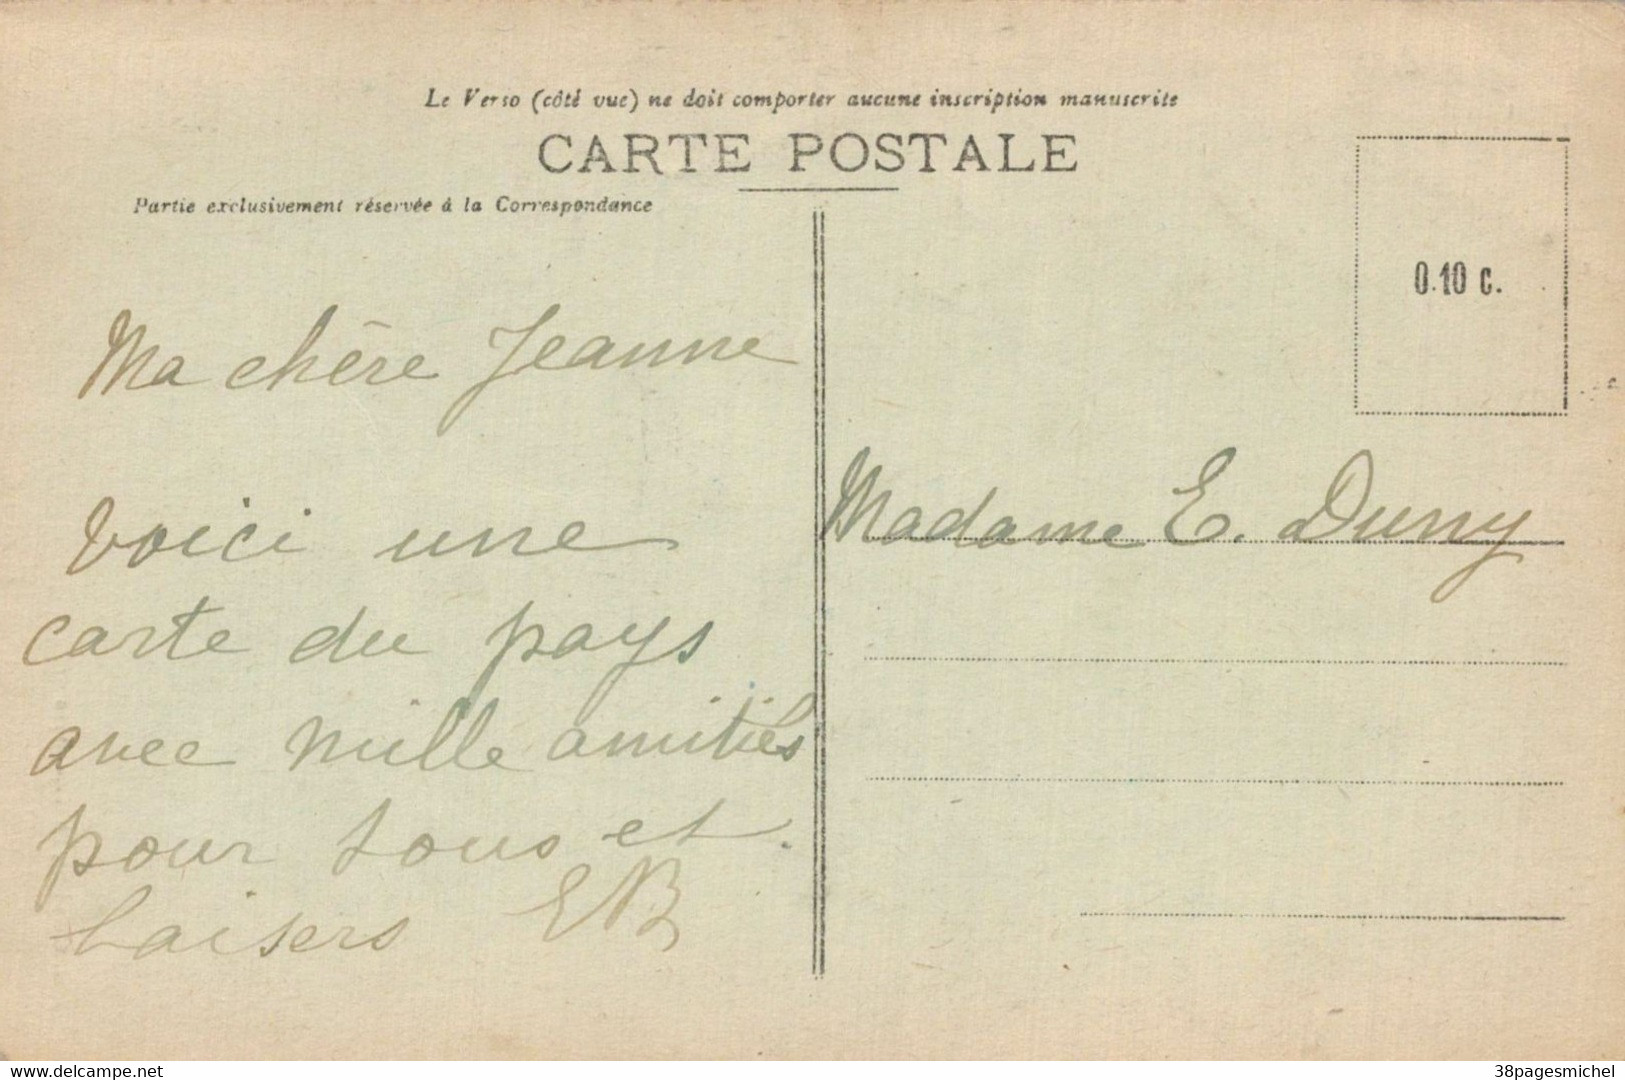 Le Verso (côté vue) ne doit comporter aucune inscription manuscrite
CARTE POSTALE
Partie exclusivement réservée à la Correspondance
0.10 c.
Ma chère Jeanne
Voici une
carte du pays
avec mille amitiés
pour tous et
baisers EB
Madame E. Duny
www.delcampe.net
38pagesmichel